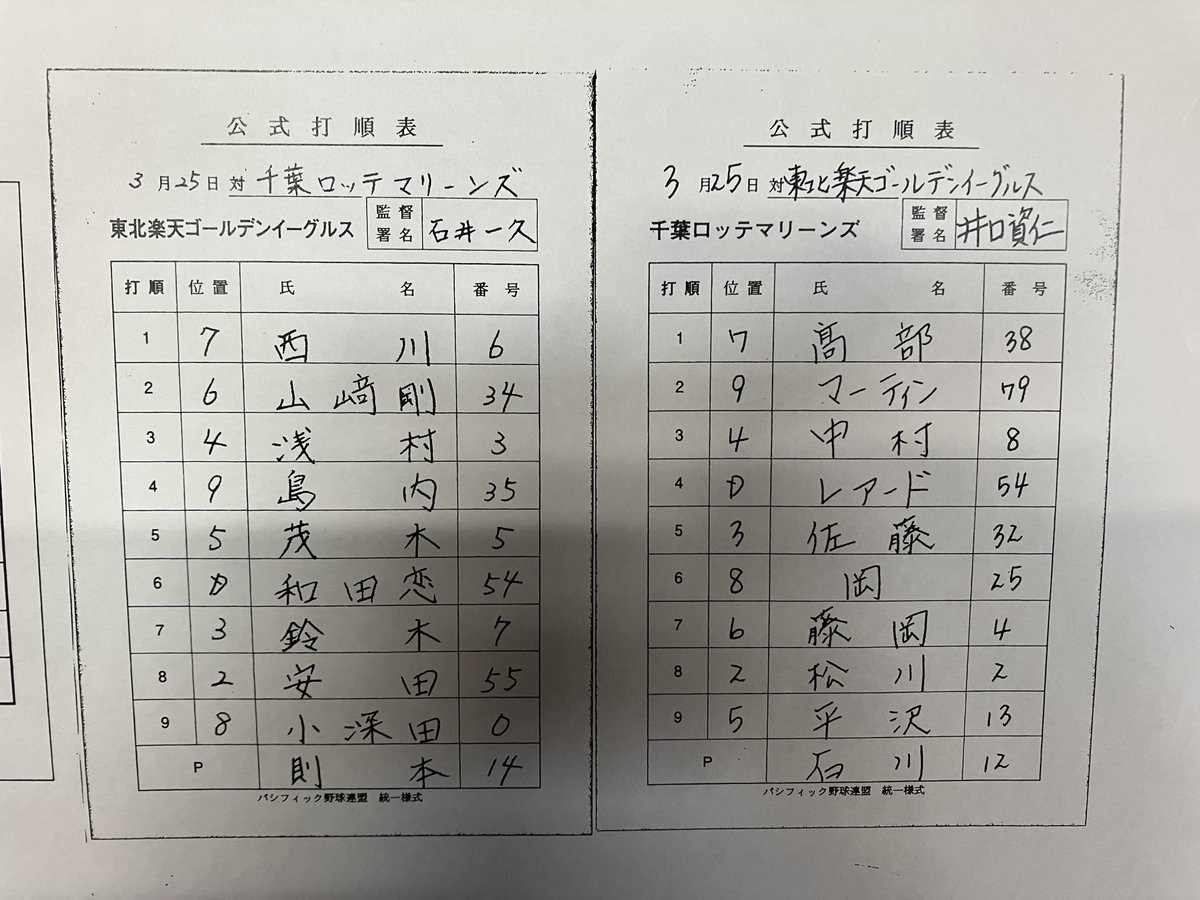 公式打順表
3月25日対千葉ロッテマリーンズ
東北楽天ゴールデンイーグルス 監督署名 石井一久
打順 位置 氏名 番号
1 7 西川 6
2 6 山﨑剛 34
3 4 浅村 3
4 9 島内 35
5 5 茂木 5
6 D 和田恋 54
7 3 鈴木 7
8 2 安田 55
9 8 小深田 0
P 則本 14
パシフィック野球連盟 統一様式
公式打順表
3月25日対東北楽天ゴールデンイーグルス
千葉ロッテマリーンズ 監督署名 井口資仁
打順 位置 氏名 番号
1 7 髙部 38
2 9 マーティン 79
3 4 中村 8
4 D レアード 54
5 3 佐藤 32
6 8 岡 25
7 6 藤岡 4
8 2 松川 2
9 5 平沢 13
P 石川 12
パシフィック野球連盟 統一様式